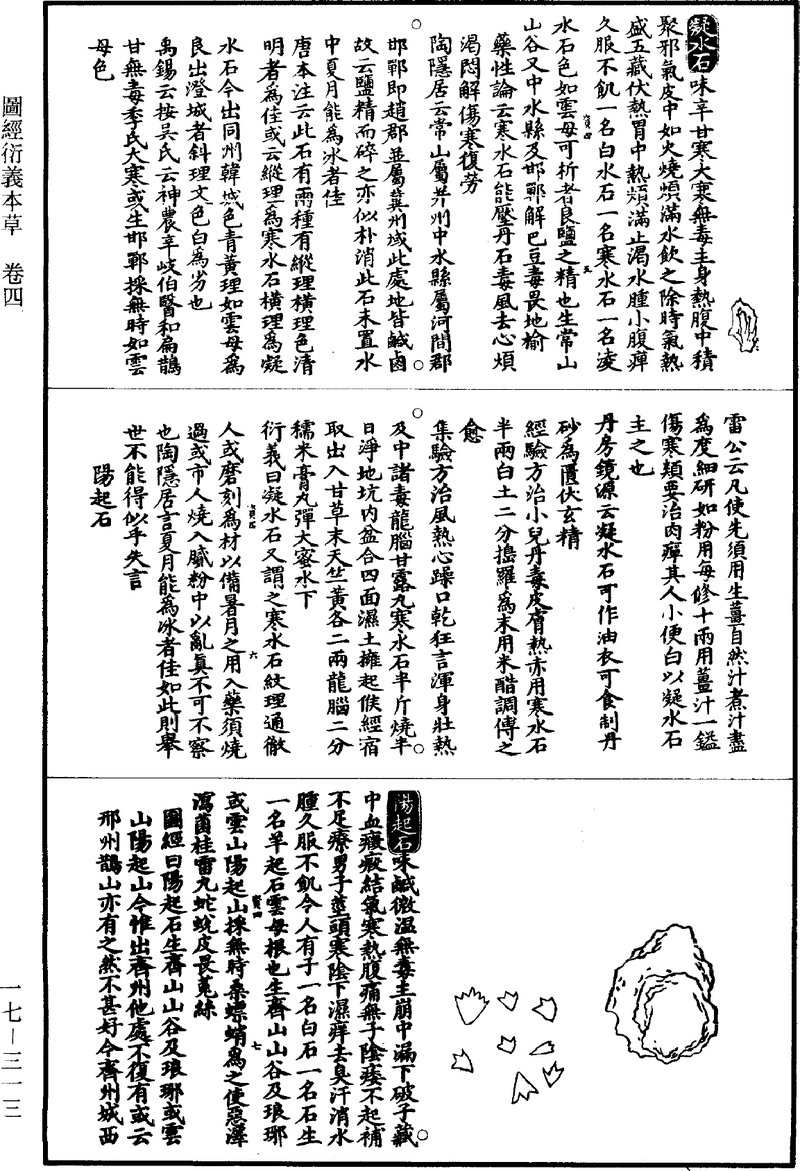 凝水石味辛甘寒大寒無毒主身熱腹中積
聚邪氣皮中如火燒煩滿水飲之除時氣熱
盛五藏伏熱胃中熱煩滿止渴水腫小腹痺
久服不飢一名白水石一名寒水石一名凌
水石色如雲母可析者良鹽之精也生常山
山谷又中水縣及邯鄲解巴豆毒畏地榆
藥性論云寒水石能壓丹石毒風去心煩
渴悶解傷寒復勞
陶隱居云常山屬并州中水縣屬河間郡
邯鄲即趙郡並屬冀州域此處地皆鹹鹵
故云鹽精而碎之亦似朴消此石末置水
中夏月能為冰者佳
唐本注云此石有兩種有縱理橫理色清
明者為佳或云縱理為寒水石橫理為凝
水石今出同州韓城色青黃理如雲母為
良出澄城者斜理文色白為劣也
禹錫云按吳氏云神農辛岐伯醫和扁鵲
甘無毒季氏大寒或生邯鄲採無時如雲
母色
雷公云凡使先須用生薑自然汁煮汁盡
為度細研如粉用每修十兩用薑汁一鎰
傷寒類要治肉癉其人小便白以凝水石
主之也
丹房鏡源云凝水石可作油衣可食制丹
砂為匱伏玄精
經驗方治小兒丹毒皮膚熱赤用寒水石
半兩白土二分搗羅為末用米醋調傅之
愈
集驗方治風熱心躁口乾狂言渾身壯熱
及中諸毒龍腦甘露丸寒水石半斤燒半
日淨地坑內盆合四面濕土擁起候經宿
取出入甘草末天竺黃各二兩龍腦二分
糯米膏丸彈大蜜水下
衍義曰凝水石又謂之寒水石紋理通徹
人或磨刻為材以備暑月之用入藥須燒
過或市人燒入膩粉中以亂真不可不察
也陶隱居言夏月能為冰者佳如此則舉
世不能得似乎失言
陽起石
陽起石味鹹微溫無毒主崩中漏下破子藏
中血癥瘕結氣寒熱腹痛無子陰痿不起補
不足療男子莖頭寒陰下濕痒去臭汗消水
腫久服不飢令人有子一名白石一名石生
一名羊起石雲母根也生齊山山谷及琅琊
或雲山陽起山採無時桑螵蛸為之使惡澤
瀉菌桂雷丸蛇蛻皮畏菟絲
圖經曰陽起石生齊山山谷及琅琊或雲
山陽起山今惟出齊州他處不復有或云
邢州鵲山亦有之然不甚好今齊州城西
圖經衍義本草 卷四
一七—三一三